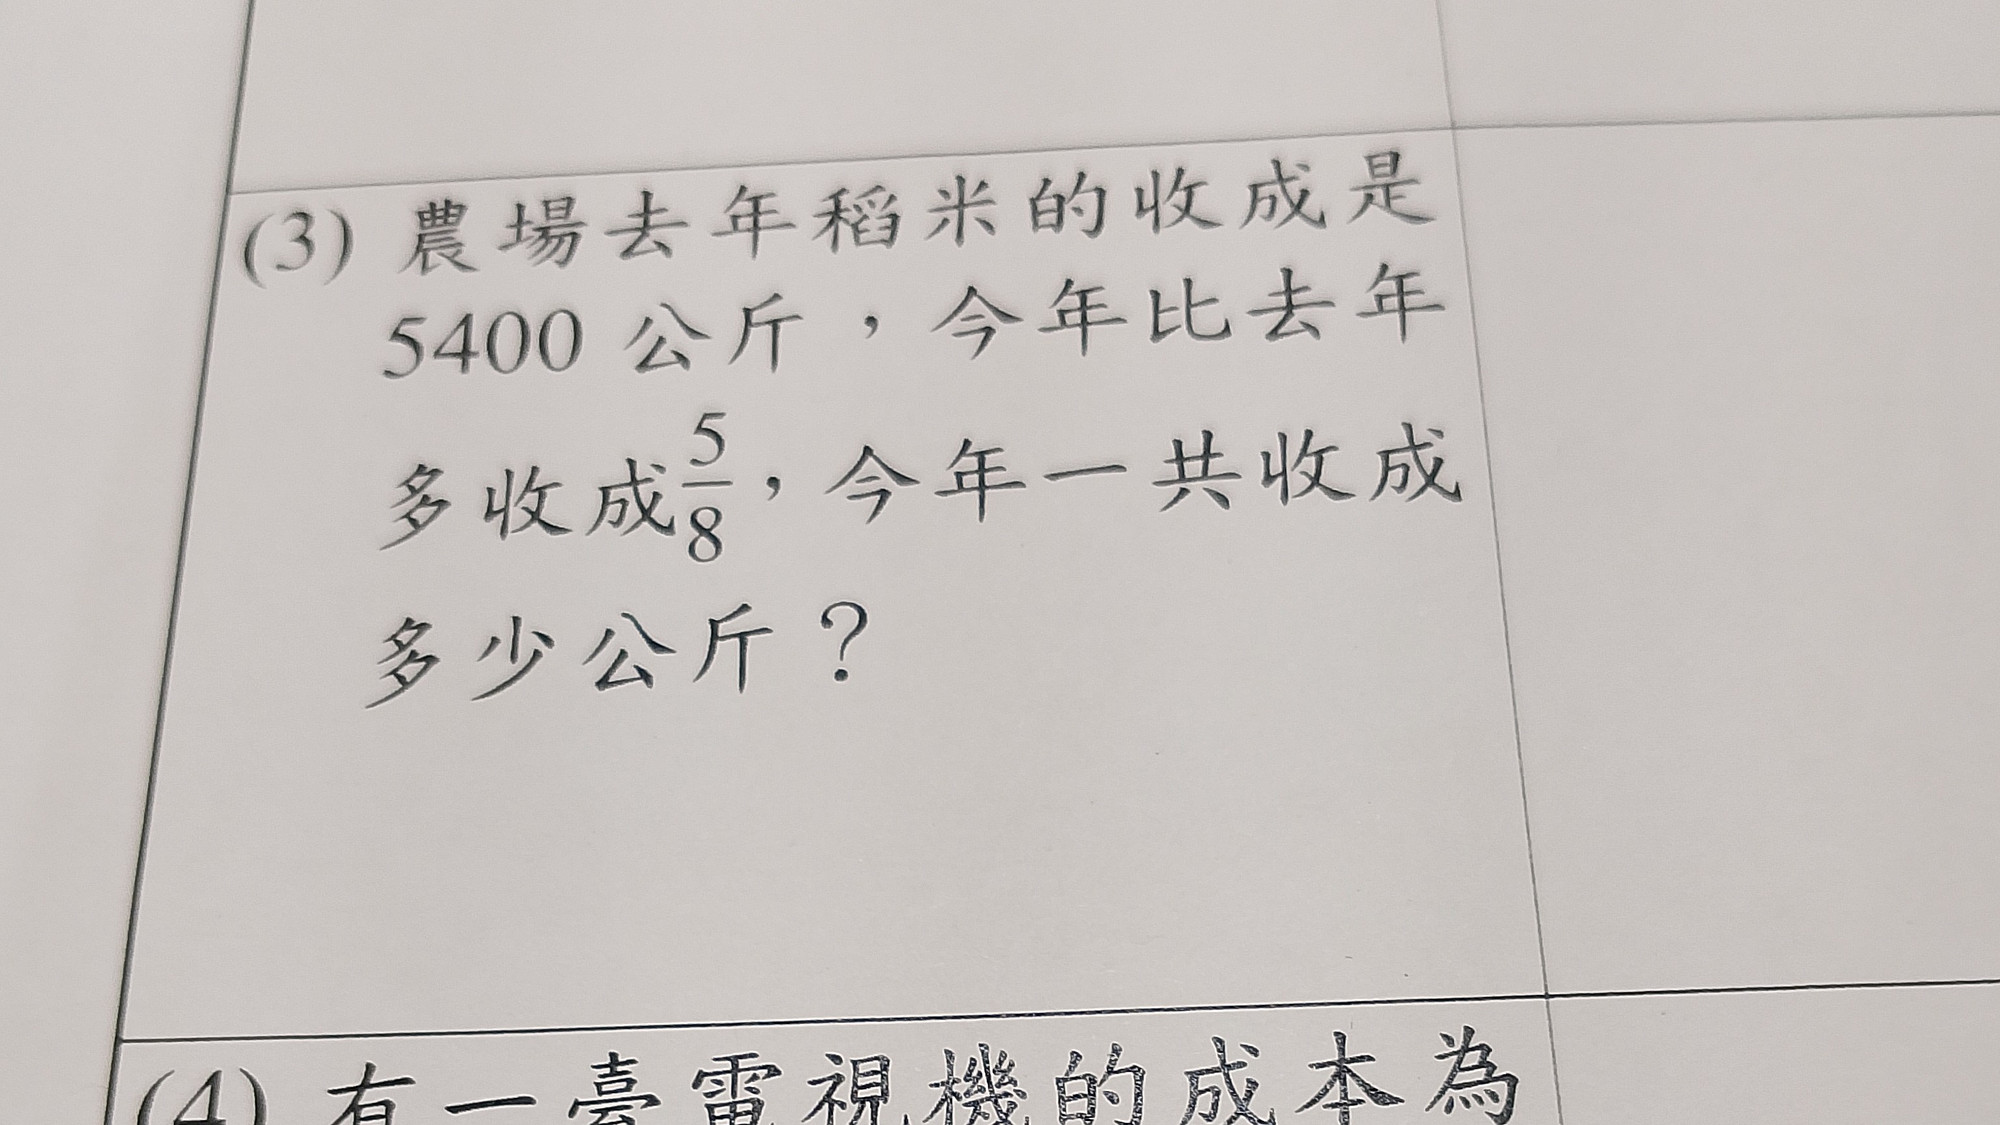 (3) 農場去年稻米的收成是
5400 公斤，今年比去年
多收成5/8，今年一共收成
多少公斤？
(4) 有一臺電視機的成本為